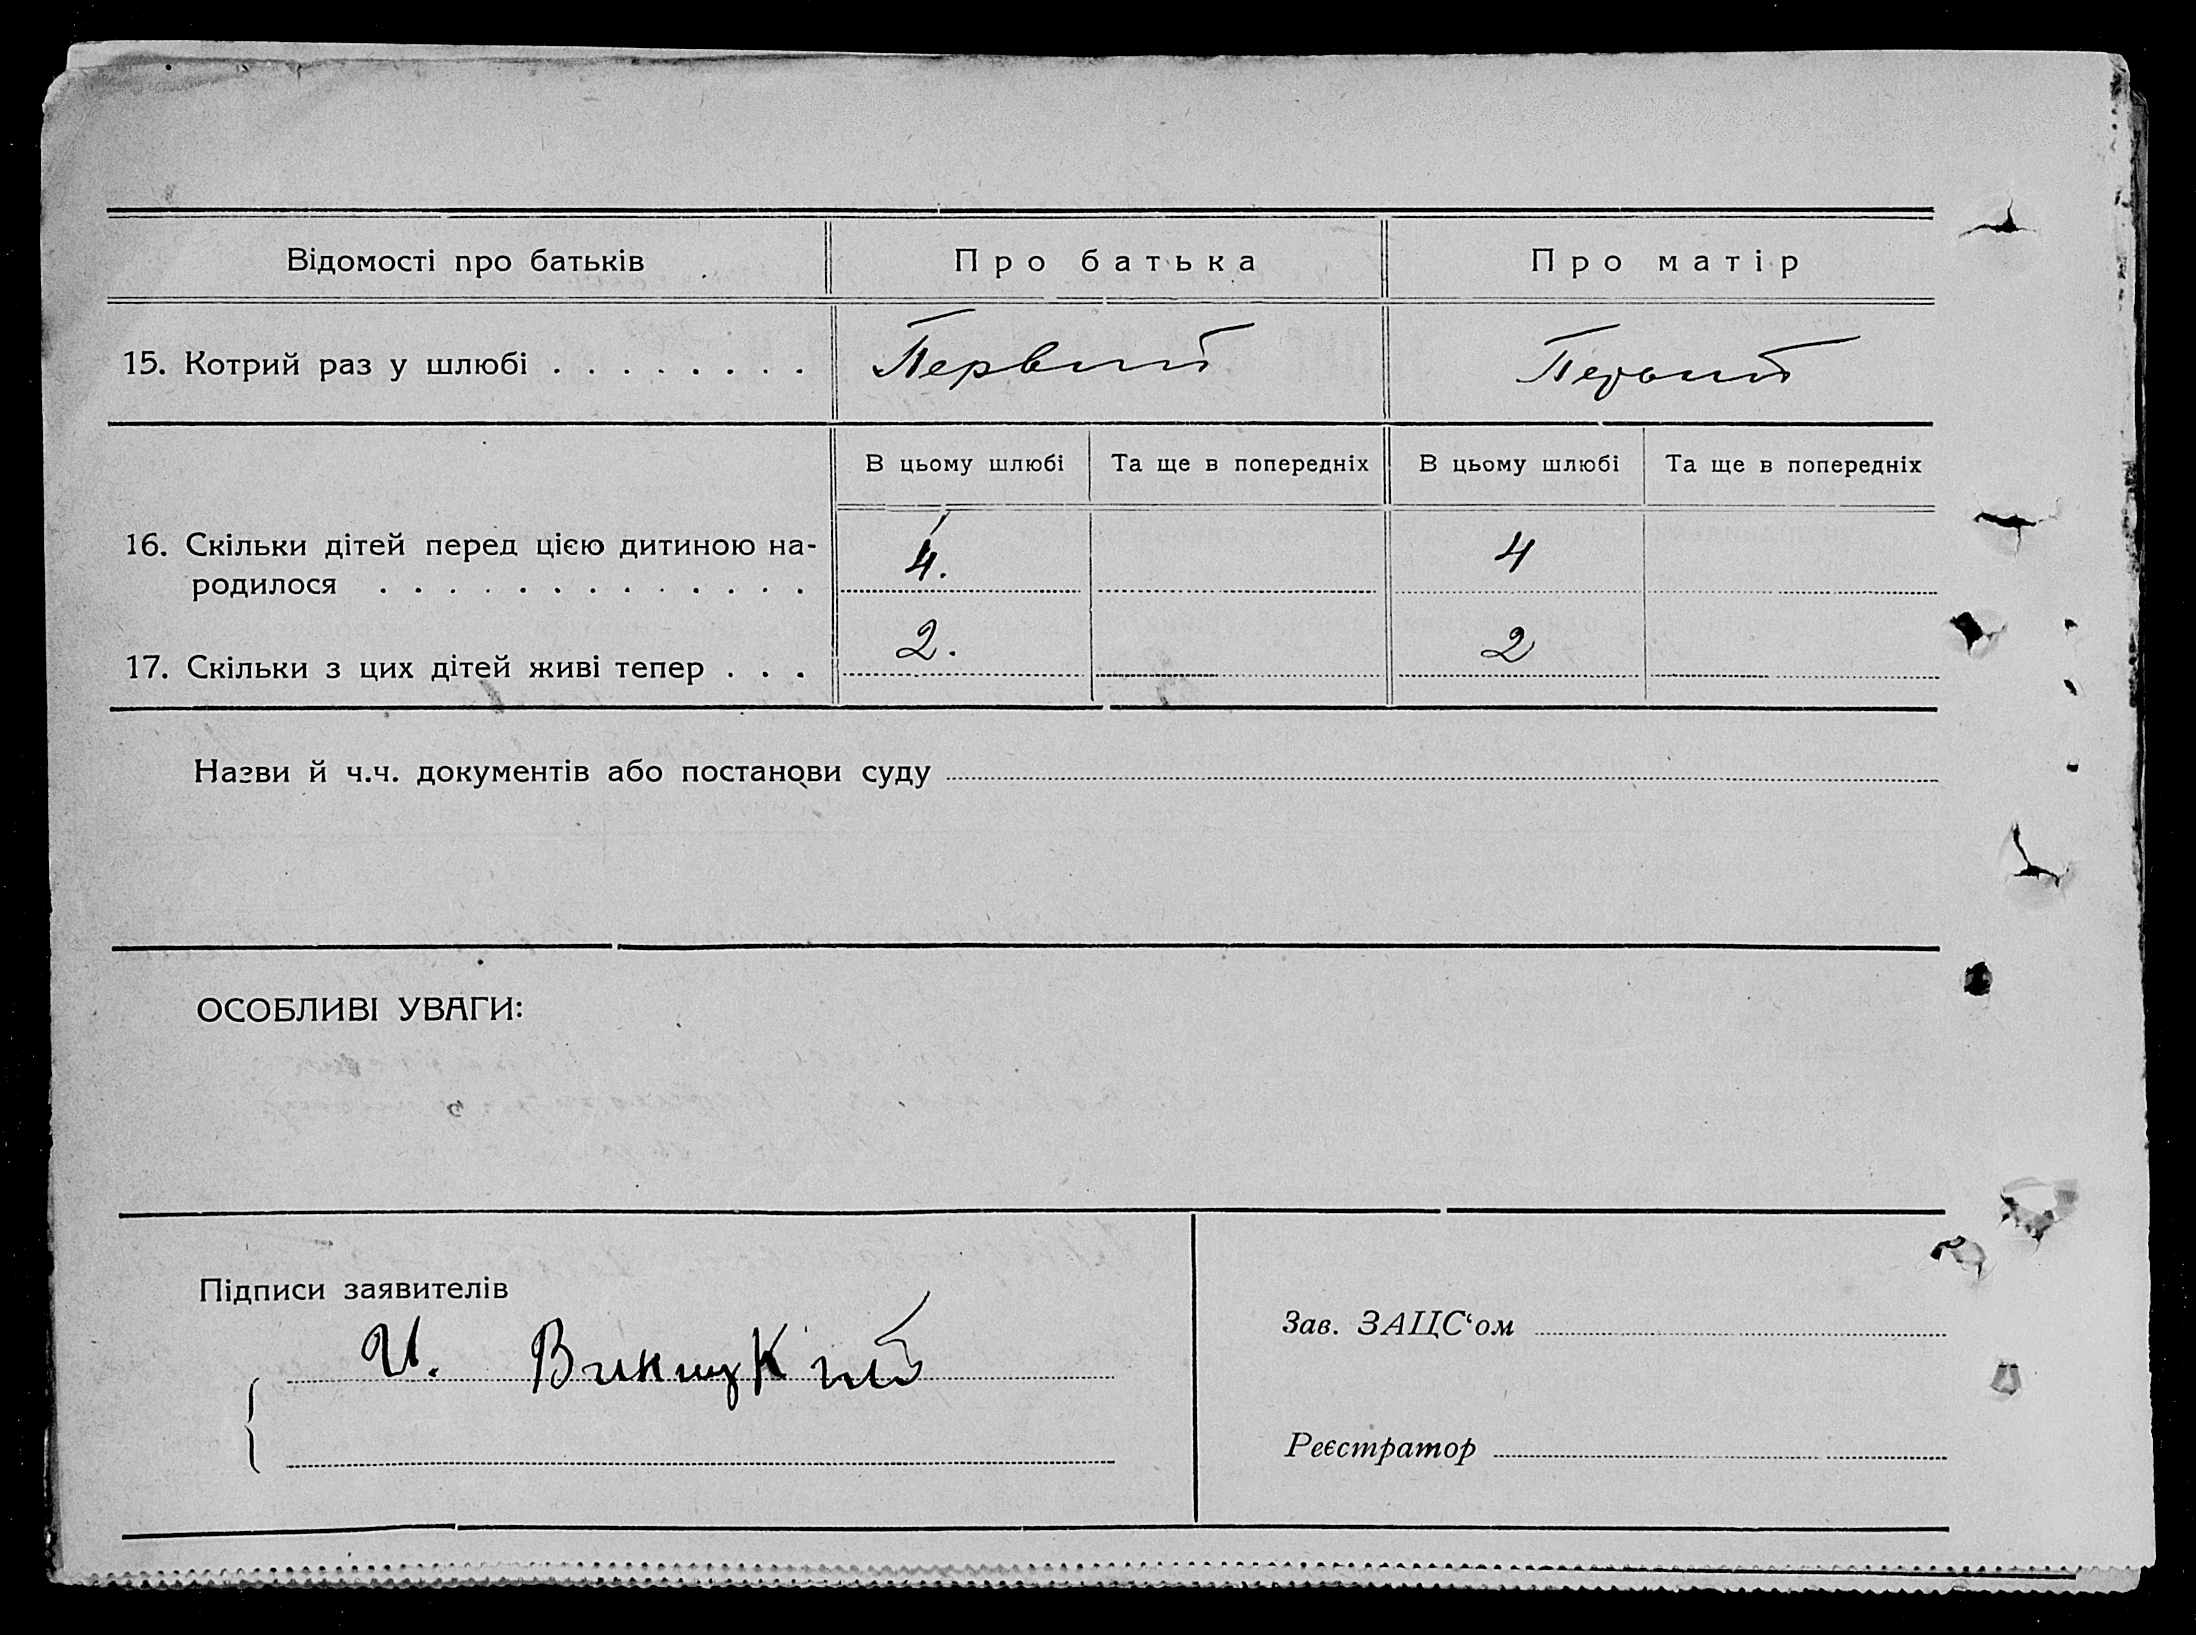 Відомості про батьків Про батька Про матір
15. Котрий раз у шлюбі . . . . . . . . Первий Первий
В цьому шлюбі Та ще в попередніх В цьому шлюбі Та ще в попередніх
16. Скільки дітей перед цією дитиною на-
родилося . . . . . . . . . . . . . 4. 4
17. Скільки з цих дітей живі тепер . . . 2. 2
Назви й ч.ч. документів або постанови суду
ОСОБЛИВІ УВАГИ:
Підписи заявителів
И.
Зав. ЗАЦС‘ом
Реєстратор